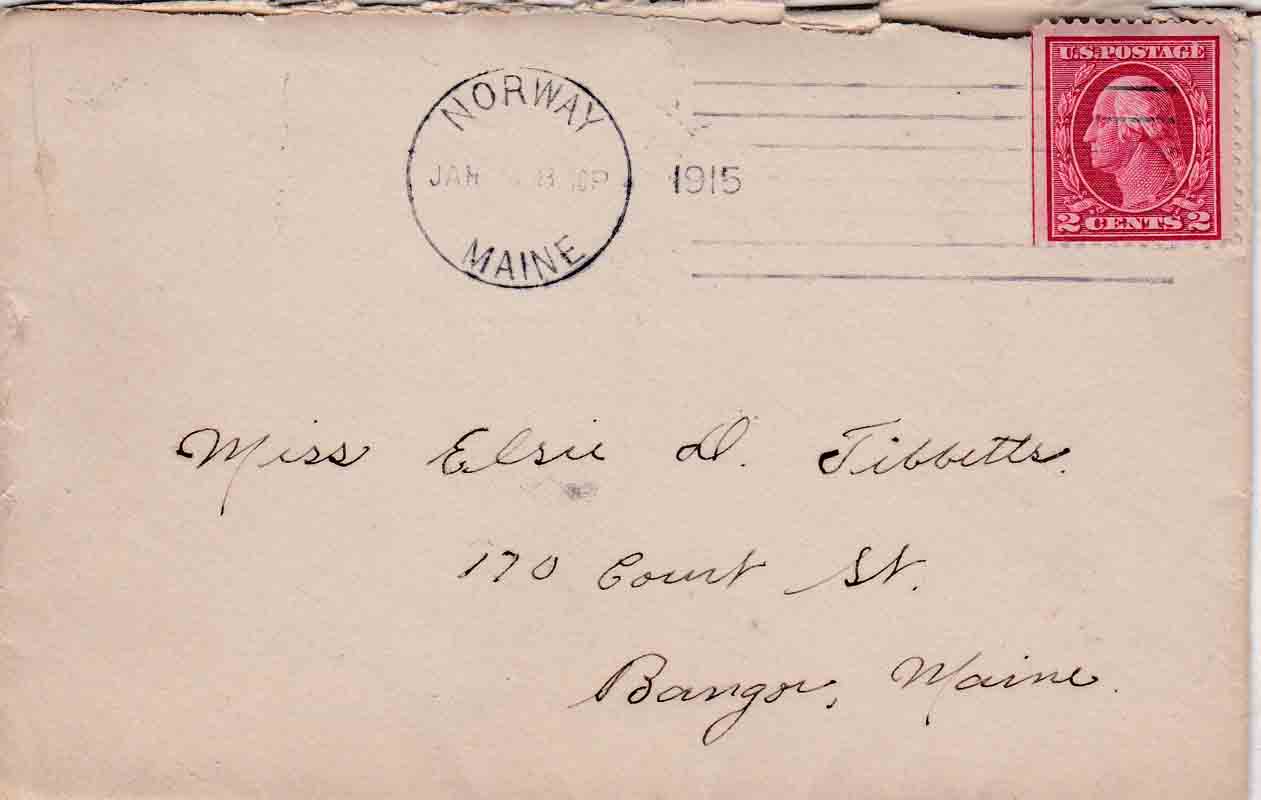 NORWAY
JAN
1915
MAINE
U.S. POSTAGE
2 CENTS 2
Miss Elsie D. Tibbetts.
170 Court St.
Bangor, Maine.